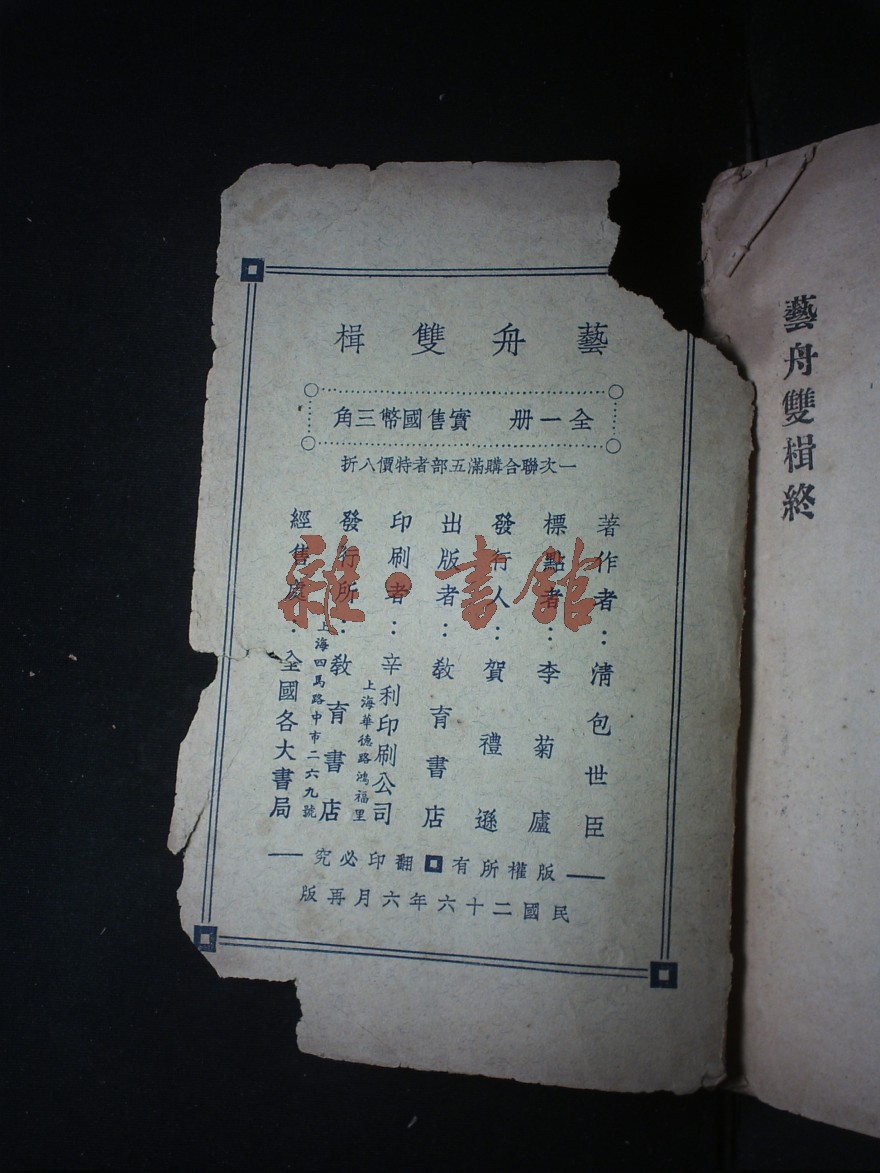 藝舟雙楫終
藝舟雙楫
全一册 實售國幣三角
一次聯合購滿五部者特價八折
著作者：清包世臣
標點者：李菊廬
發行人：賀禮遜
出版者：教育書店
印刷者：辛利印刷公司
上海華德路鴻福里
發行所：教育書店
上海四馬路中市二六九號
經售處：全國各大書局
版權所有 翻印必究
民國二十六年六月再版
雜·書館